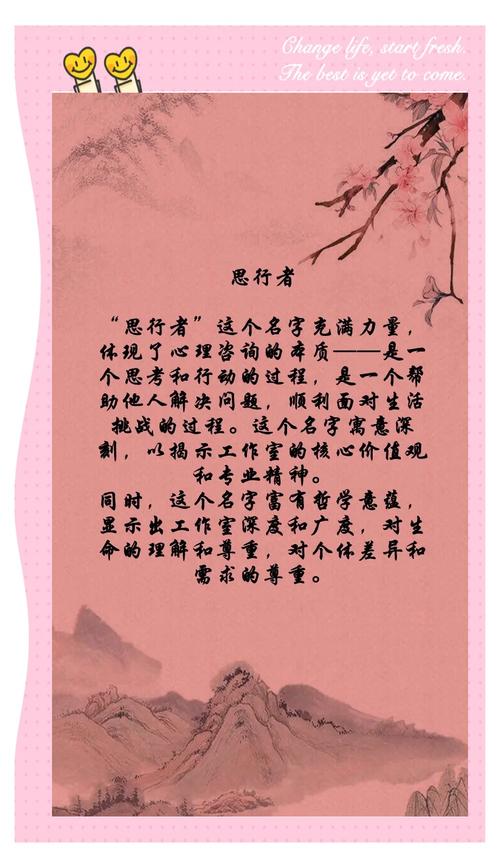 Change life, start fresh.
The best is yet to come.
思行者
“思行者”这个名字充满力量，
体现了心理咨询的本质——是一
个思考和行动的过程，是一个帮
助他人解决问题，顺利面对生活
挑战的过程。这个名字寓意深
刻，以揭示工作室的核心价值观
和专业精神。
同时，这个名字富有哲学意蕴，
显示出工作室深度和广度，对生
命的理解和尊重，对个体差异和
需求的尊重。